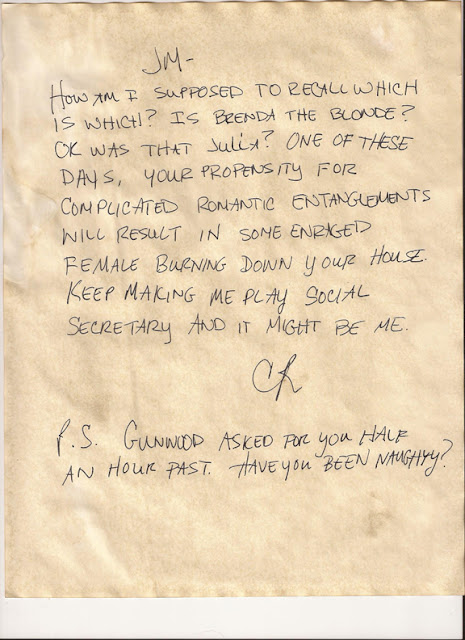 JM-
HOW AM I SUPPOSED TO RECALL WHICH
IS WHICH? IS BRENDA THE BLONDE?
OR WAS THAT JULIA? ONE OF THESE
DAYS, YOUR PROPENSITY FOR
COMPLICATED ROMANTIC ENTANGLEMENTS
WILL RESULT IN SOME ENRAGED
FEMALE BURNING DOWN YOUR HOUSE.
KEEP MAKING ME PLAY SOCIAL
SECRETARY AND IT MIGHT BE ME.
CR
P.S. GUNWOOD ASKED FOR YOU HALF
AN HOUR PAST. HAVE YOU BEEN NAUGHTY?